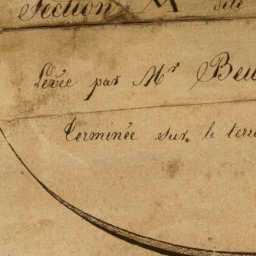 Section M dite
Levée par Mr Beu
Terminée sur le terr